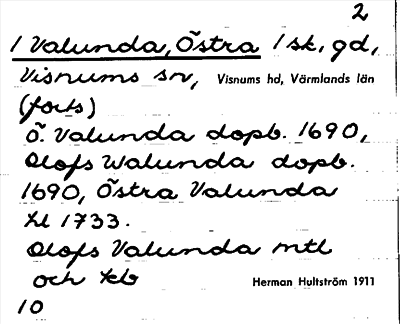 2
1 Valunda, Östra 1 sk, gd,
Visnums sn, Visnums hd, Värmlands län
(forts)
Ö. Valunda dopb. 1690,
Olofs Walunda dopb.
1690, Östra Valunda
hl 1733.
Olofs Valunda mtl
och kb
Herman Hultström 1911
10